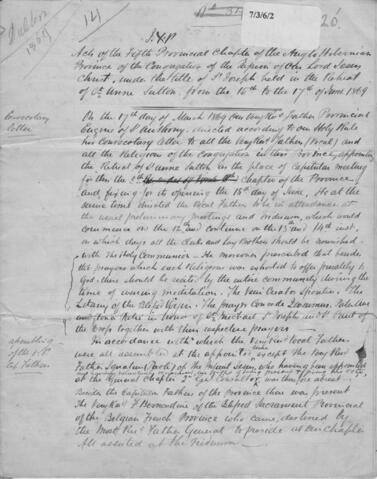 7/3/6/2
J. X. P.
Acts of the Fifth Provincial Chapter of the Anglo Hibernian
Province of the Congregation of the Passion of Our Lord Jesus
Christ, under the title of St Joseph held in the Retreat
of St Anne Sutton, from the 15th to the 17th of June 1869
Convocatory
letter
On the 17th day of March 1869 Our Very Revd Father Provincial
Eugene of St Anthony, directed according to our Holy Rule
his Convocatory letter to all the Very Revd Fathers (Vocal) and
all the Religious of the Congregation in due form, appointing
the Retreat of St Anne Sutton as the place of Capitular meeting
for the 5th Chapter of the Province
and fixing for its opening the 15th day of June. He at the
same time directed the Vocal Fathers to be in attendance at
the usual preliminary meetings and triduum, which would
commence on the 12th and continue on the 13th and 14th inst.
on which days all the and Lay Brothers should be nourished
with the Holy Communion. He moreover prescribed that beside
the prayers which each Religious was expected to offer privately to
God there should be recited by the entire community during the
time of evening meditation. The Veni Creator Spiritus. The
Litany of the Blessed Virgin. The prayer Concede
in honor of St Michael St Joseph and St Paul of
the Cross together with their respective prayers
assembling
of the
Fathers
In accordance with which the Very Revd Vocal Fathers
were all assembled at the appointed time, except the Very Revd
Father Ignatius (Paoli) of the Infant Jesus, who having been appointed
at the General Chapter 3rd Genl Consultor was therefore absent.
Beside the Capitular Fathers of the Province there was present
The Very Revd F. Bernardine of the Blessed Sacrament Provincial
of the Belgian French Province who came, destined by
the Most Revd Father General to preside at our Chapter
All assisted at the Triduum.